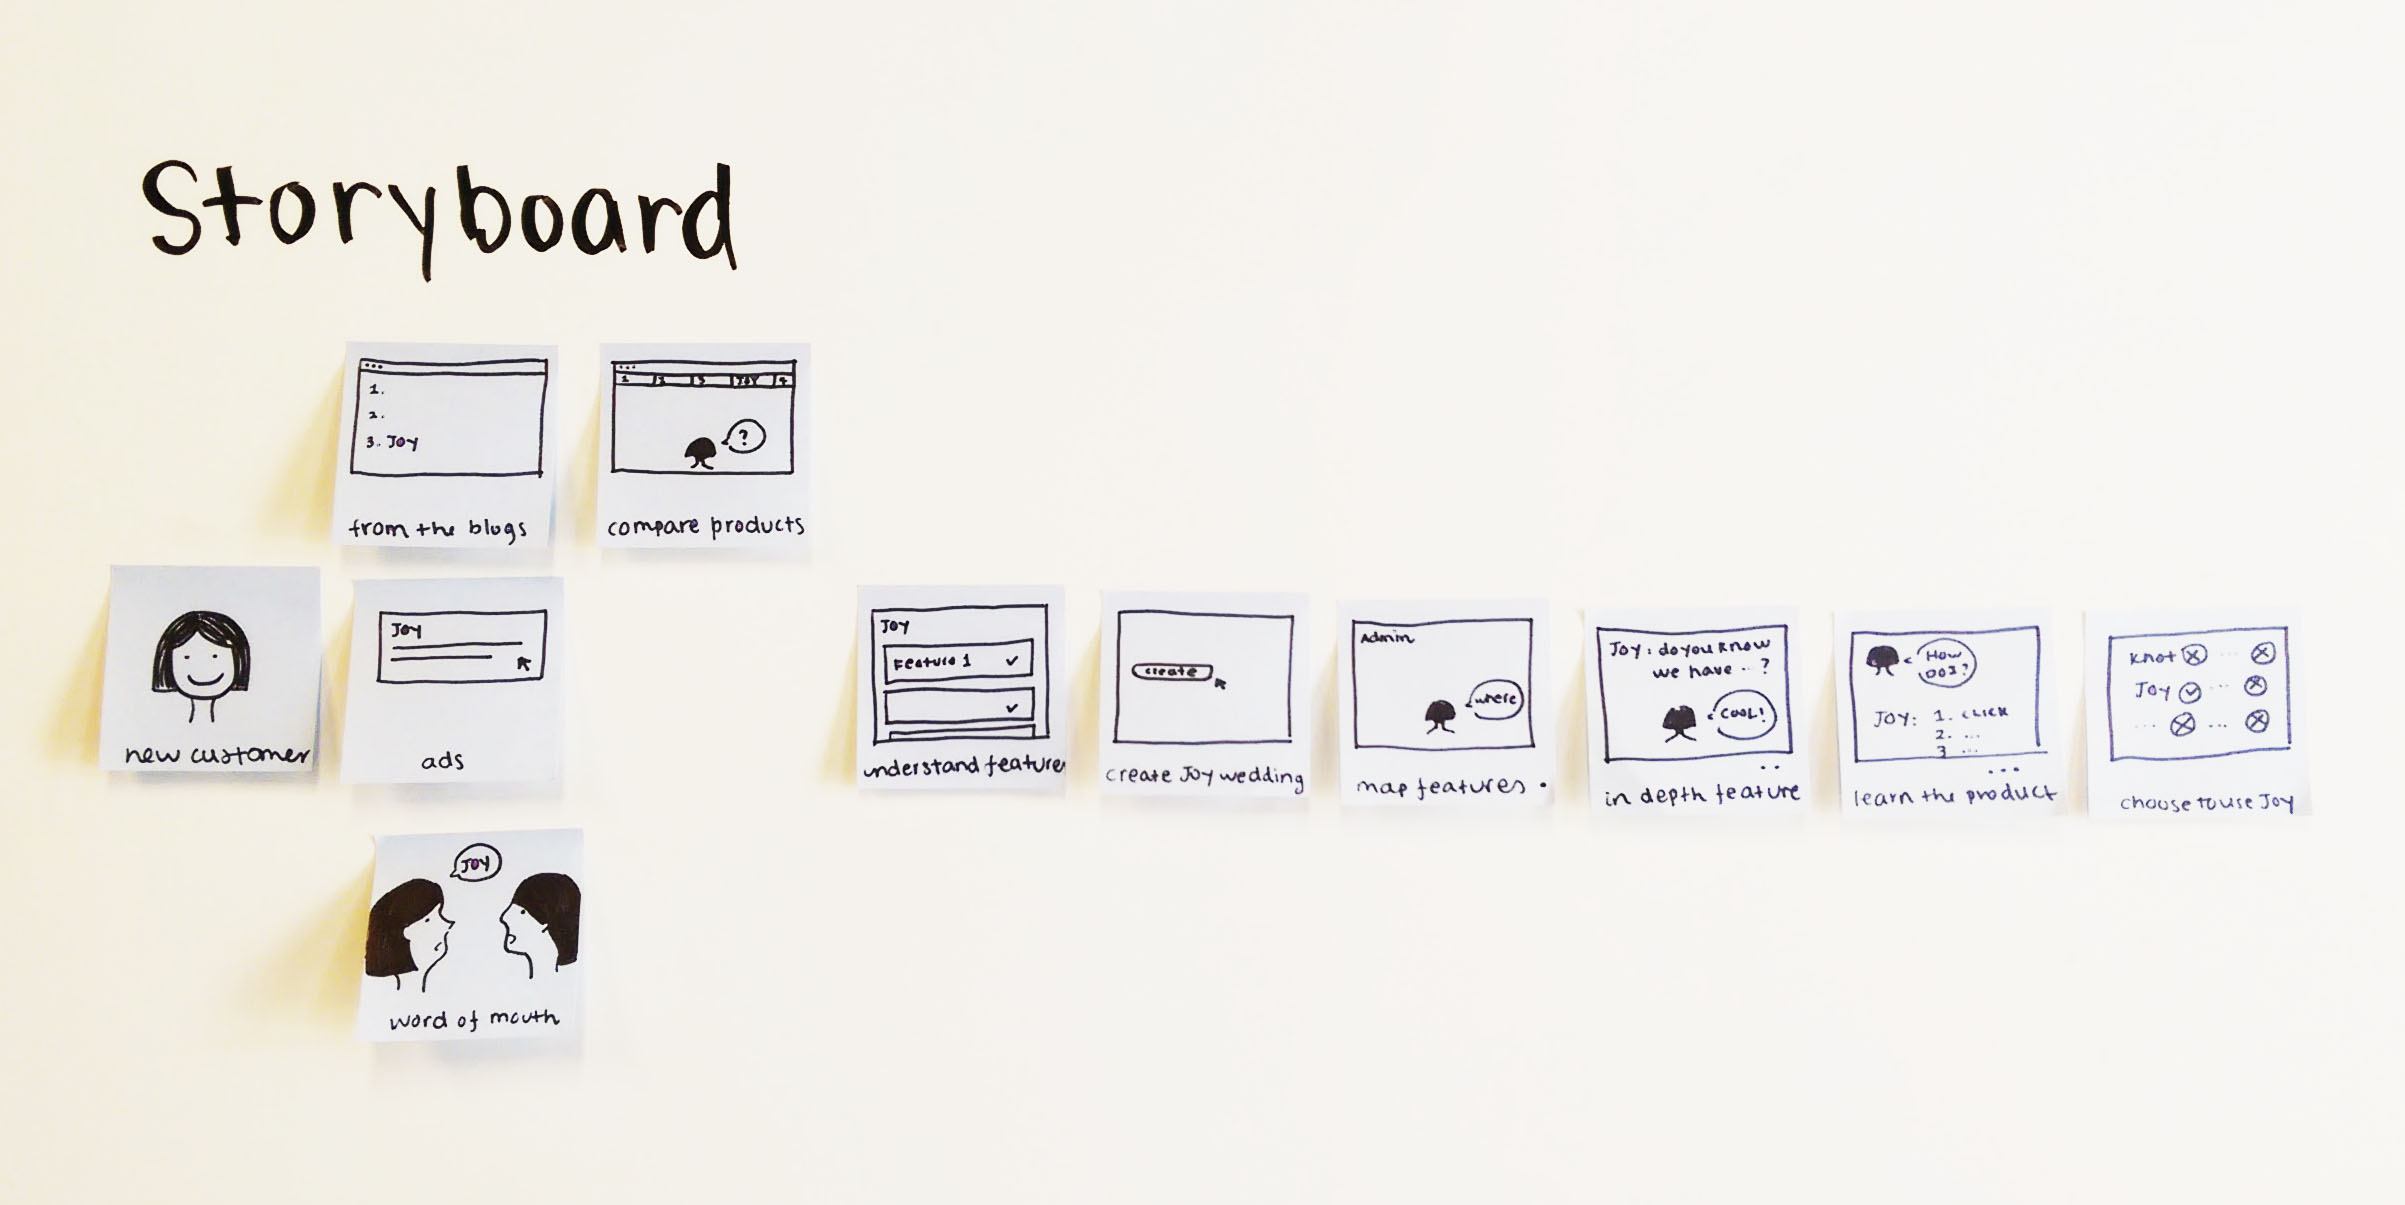 Storyboard
1.
2.
3. Joy
from the blogs
1 2 3 JOY 4
?
compare products
new customer
Joy
ads
Joy
word of mouth
Joy
Feature 1
understand feature
create
create Joy wedding
Admin
where
map features
Joy: do you know
we have ...?
COOL!
in depth feature
How
DO I?
JOY: 1. CLICK
2. ...
3 ...
learn the product
Knot ...
Joy ...
... ...
choose to use Joy